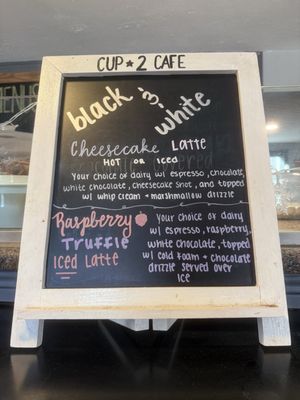 CUP ★ 2 CAFE
black
&
white
Cheesecake Latte
HOT OR ICED
Your choice of dairy w/ espresso, chocolate,
white chocolate, cheesecake shot, and topped
w/ whip cream + marshmallow drizzle
Raspberry
Truffle
Iced Latte
Your choice of dairy
w/ espresso, raspberry,
white chocolate, topped
w/ cold foam + chocolate
drizzle served over
ice